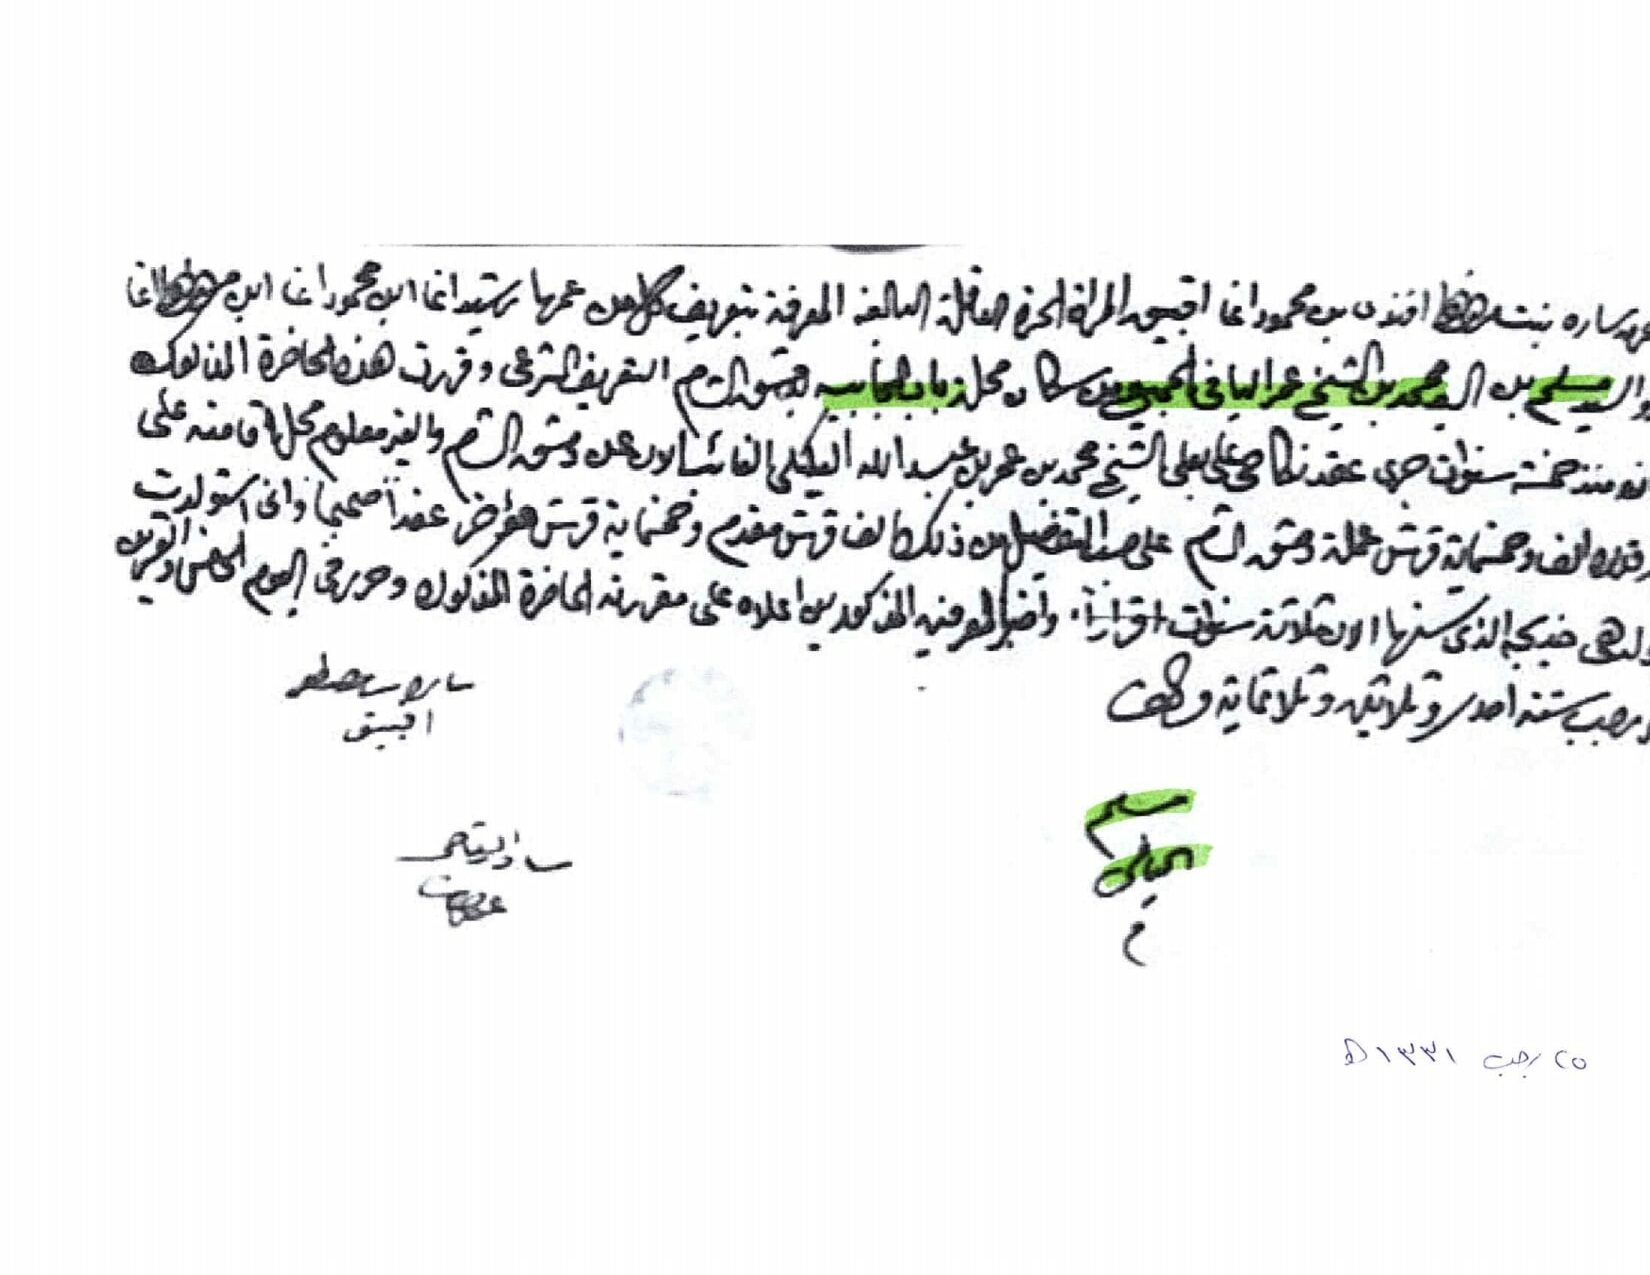 ساره بنت مصطفى افندي بن محمود اغا اقبيق المرأة الحرة العاقلة البالغه المعرفة بتعريف كل من عمها رشيد اغا ابن محمود اغا ابن مصطفى اغا
والسيد مسلم بن السيد محمد بن الشيخ عمر اليافي الحسيني من سكان محلة باب الجابيه بدمشق الشام التعريف الشرعي وقررت هذه الحاضرة المذكورة
منذ خمسة سنوات جرى عقد نكاحي على بعلي الشيخ محمد بن عمر بن عبد الله الغائب الان عن دمشق الشام والغير معلوم محل اقامته على
الف وخمسماية قرش عملة دمشق الشام على التفصيل من ذلك الف قرش مقدم وخمسماية قرش مؤخر عقداً صحيحاً واني استولدت
خديجه الذي سنها الان ثلاثة سنوات اقراراً واخبر المعرفين المذكورين اعلاه على مقررته الحاضرة المذكورة وحرر في اليوم الخامس والعشرين
رجب سنة احدى وثلاثين وثلاثماية والف
ساره مصطفى
اقبيق
مسلم
اليافي
م
٢٥ رجب ١٣٣١ ه